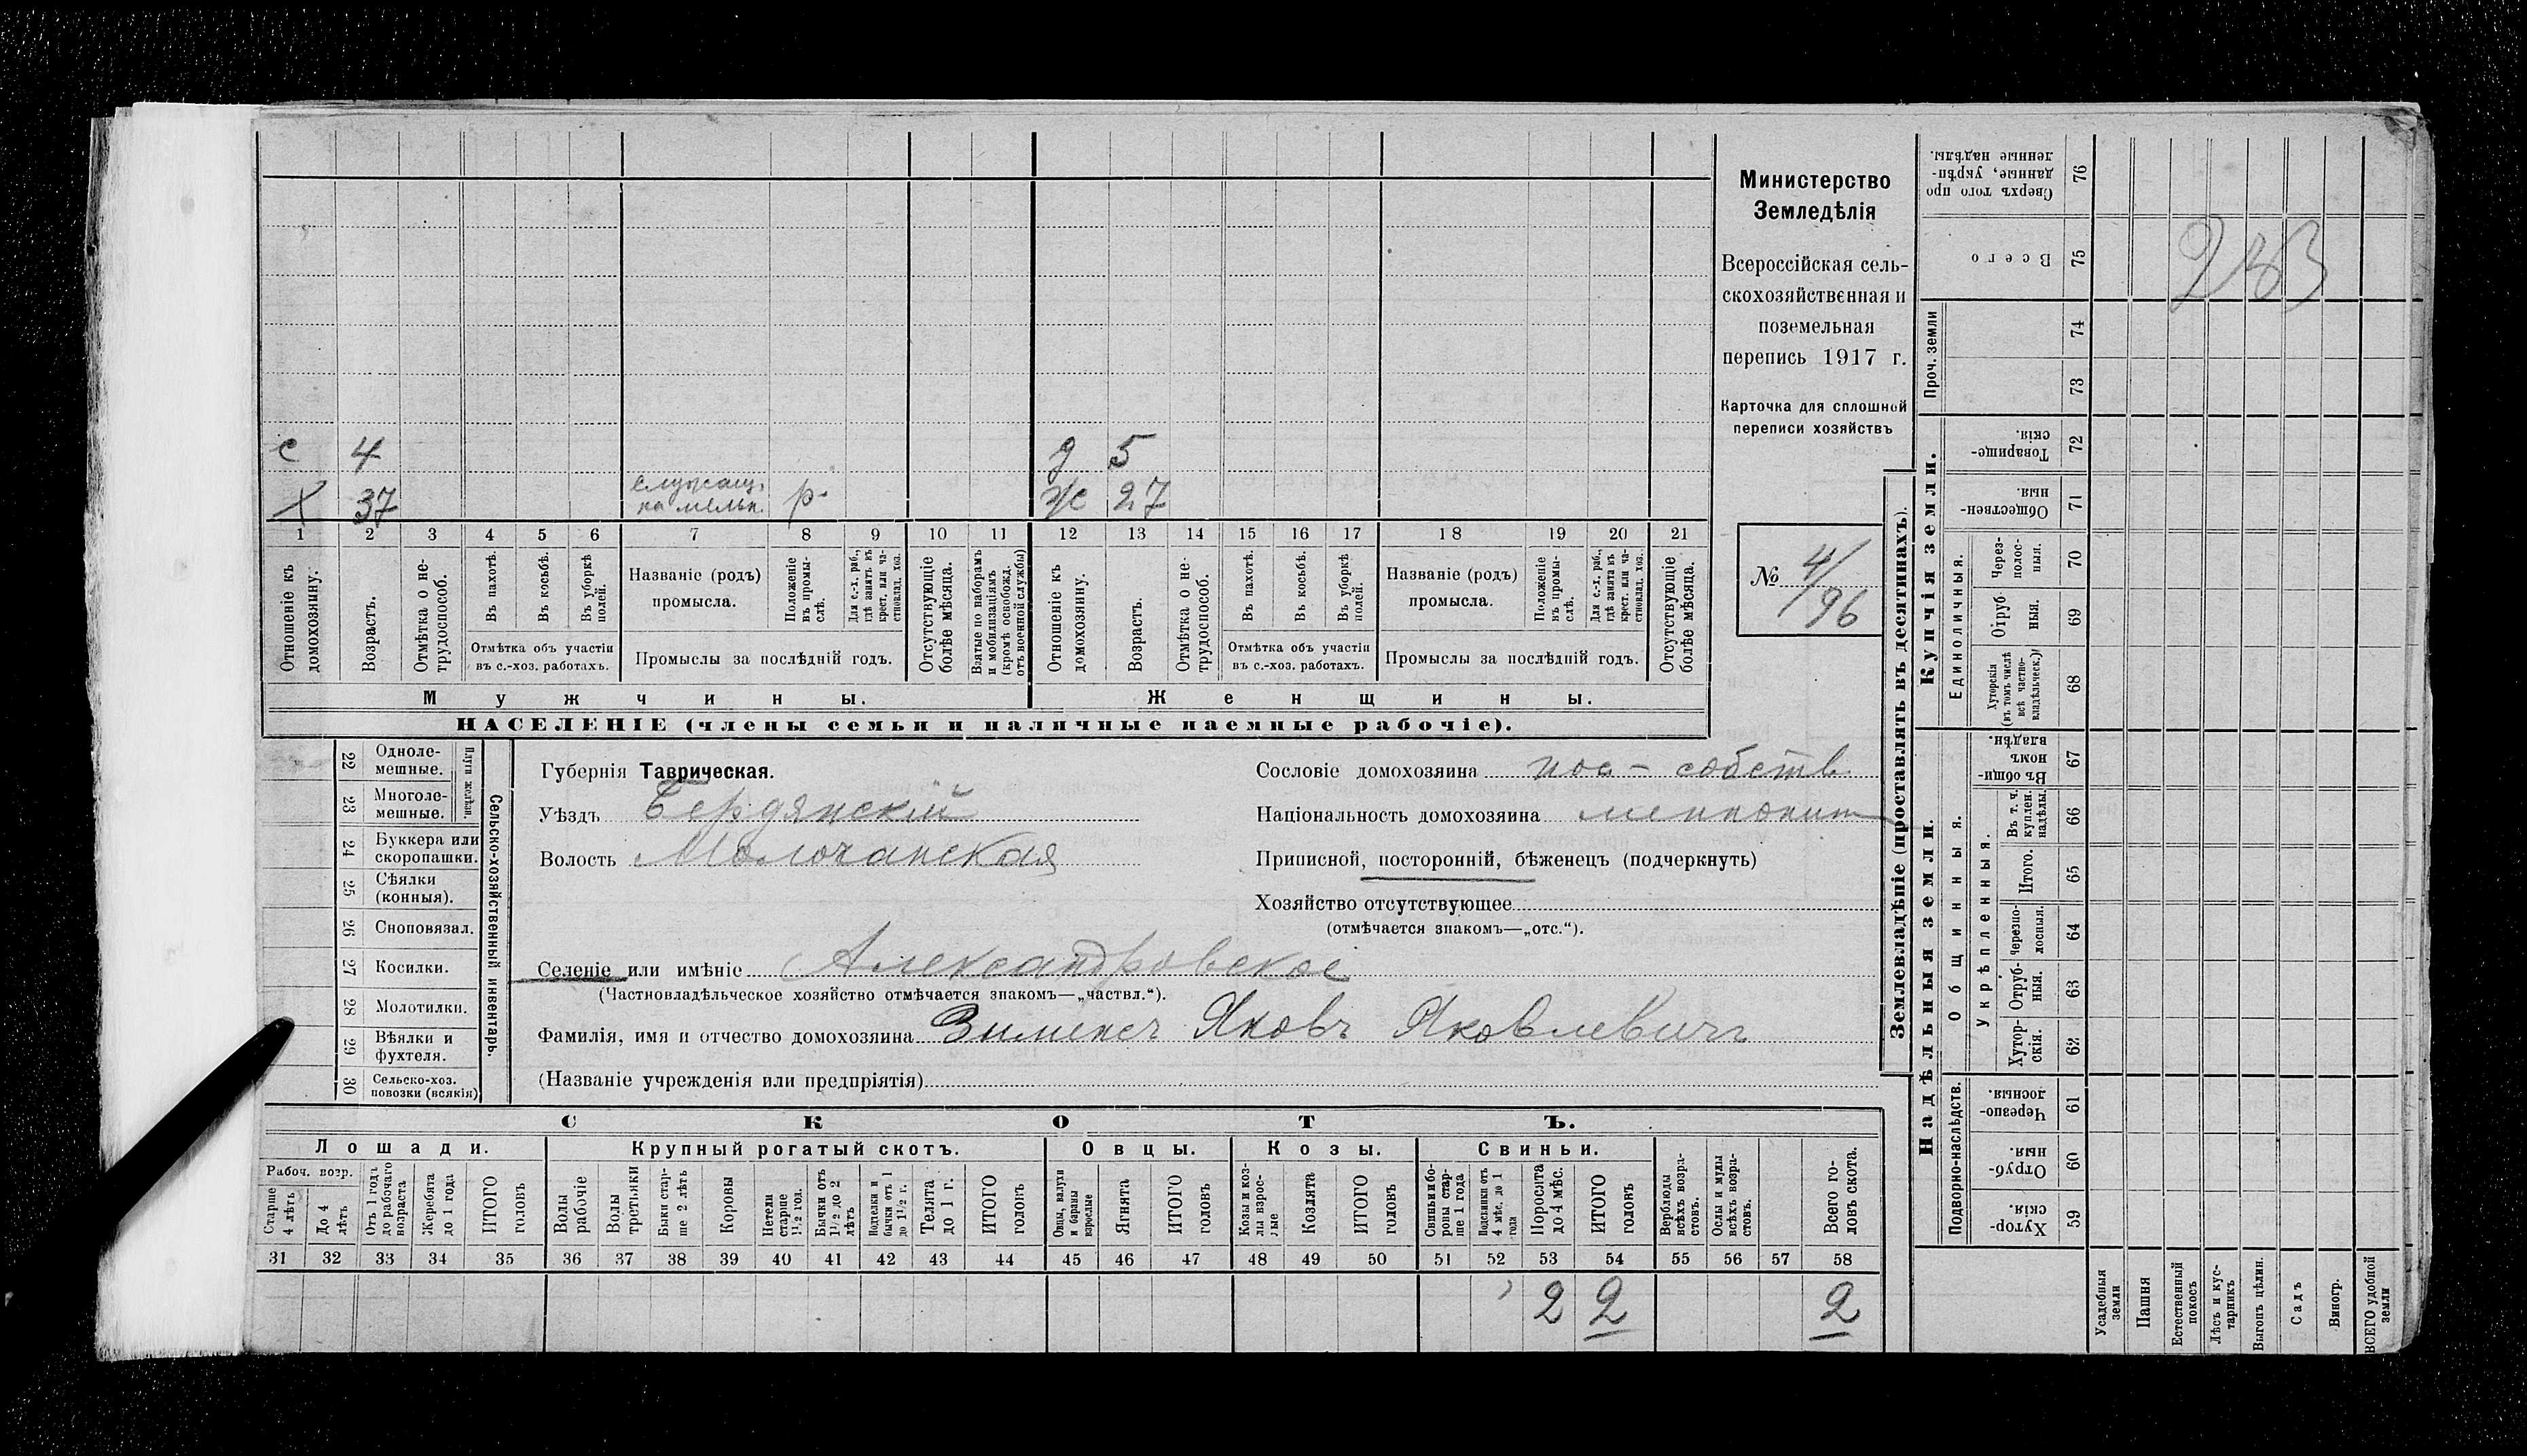 с 4 д 5
х 37 служащ. на мельн. р. ж 27
1 2 3 4 5 6 7 8 9 10 11 12 13 14 15 16 17 18 19 20 21
Отношеніе къ домохозяину.
Возрастъ.
Отмѣтка о не-трудоспособ.
Въ пахотѣ.
Въ косьбѣ.
Въ уборкѣ полей.
Отмѣтка объ участіи
въ с.-хоз. работахъ.
Названіе (родъ)
промысла.
Положеніе въ промы-слѣ.
Для с.-х. раб., гдѣ занятъ въ крест. или ча-стновлад. хоз.
Промыслы за послѣдній годъ.
Отсутствующіе болѣе мѣсяца.
Взятые по наборамъ и мобилизаціямъ (кромѣ освобожд. отъ военной службы)
Отношеніе къ домохозяину.
Возрастъ.
Отмѣтка о не-трудоспособ.
Въ пахотѣ.
Въ косьбѣ.
Въ уборкѣ полей.
Отмѣтка объ участіи
въ с.-хоз. работахъ.
Названіе (родъ)
промысла.
Положеніе въ промы-слѣ.
Для с.-х. раб., гдѣ занята въ крест. или ча-стновлад. хоз.
Промыслы за послѣдній годъ.
Отсутствующіе болѣе мѣсяца.
Мужчины. Женщины.
НАСЕЛЕНІЕ (члены семьи и наличные наемные рабочіе).
Министерство
Земледѣлія
Всероссійская сель-
скохозяйственная и
поземельная
перепись 1917 г.
Карточка для сплошной
переписи хозяйствъ
№ 4/96
22 Одноле-мешные.
23 Многоле-мешные.
Плуги желѣзн.
24 Буккера или скоропашки.
25 Сѣялки (конныя).
26 Сноповязал.
27 Косилки.
28 Молотилки.
29 Вѣялки и фухтеля.
30 Сельско-хоз. повозки (всякія)
Сельско-хозяйственный инвентарь.
Губернія Таврическая.
Уѣздъ Бердянскій
Волость Молочанская
Сословіе домохозяина пос-собств.
Національность домохозяина меннонит
Приписной, посторонній, бѣженецъ (подчеркнуть)
Хозяйство отсутствующее
(отмѣчается знакомъ—„отс.“).
Селеніе или имѣніе Александровское
(Частновладѣльческое хозяйство отмѣчается знакомъ—„частвл.“).
Фамилія, имя и отчество домохозяина Зименсъ Яковъ Яковлевичъ
(Названіе учрежденія или предпріятія)
СКОТЪ.
Лошади. Крупный рогатый скотъ. Овцы. Козы. Свиньи.
Рабоч. возр.
Старше 4 лѣтъ
До 4 лѣтъ
Отъ 1 года до рабочаго возраста
Жеребята до 1 года
ИТОГО головъ
Волы рабочіе
Волы третьяки
Быки стар-ше 2 лѣтъ
Коровы
Нетели старше 1½ год.
Бычки отъ 1½ до 2 лѣтъ
Подтелки и бычки отъ 1 до 1½ г.
Телята до 1 г.
ИТОГО головъ
Овцы, валухи и бараны взрослые
Ягнята
ИТОГО головъ
Козы и коз-лы взрос-лые
Козлята
ИТОГО головъ
Свиньи и бо-роны стар-ше 1 года
Подсвинки отъ 4 мѣс. до 1 года
Поросята до 4 мѣс.
ИТОГО головъ
Верблюды всѣхъ возра-стовъ.
Ослы и мулы всѣхъ возра-стовъ.
Всего го-ловъ скота.
31 32 33 34 35 36 37 38 39 40 41 42 43 44 45 46 47 48 49 50 51 52 53 54 55 56 57 58
2 2 2
Землевладѣніе (проставлять въ десятинахъ).
Купчія земли.
Надѣльныя земли.
Сверхъ того про-данные, укрѣп-ленные надѣлы. 76
Всего 75
233
Проч. земли
74
73
Товарище-скія. 72
Обществен-ныя. 71
Единоличныя.
Через-полос-ныя. 70
Отруб-ныя. 69
Хуторскія (въ томъ числѣ всѣ частно-владѣльческ.) 68
Общинныя.
Въ общин-номъ владѣн. 67
Укрѣпленныя.
Въ т. ч. куплен. надѣлы. 66
Итого. 65
Черезпо-лосныя. 64
Отруб-ныя. 63
Хутор-скія. 62
Подворно-наслѣдств.
Черезпо-лосныя. 61
Отруб-ныя. 60
Хутор-скія. 59
Усадебныя земли
Пашня
Естественный покосъ
Лѣсъ и кус-тарникъ
Выгонъ цѣлин.
Садъ
Виногр.
ВСЕГО удобной земли